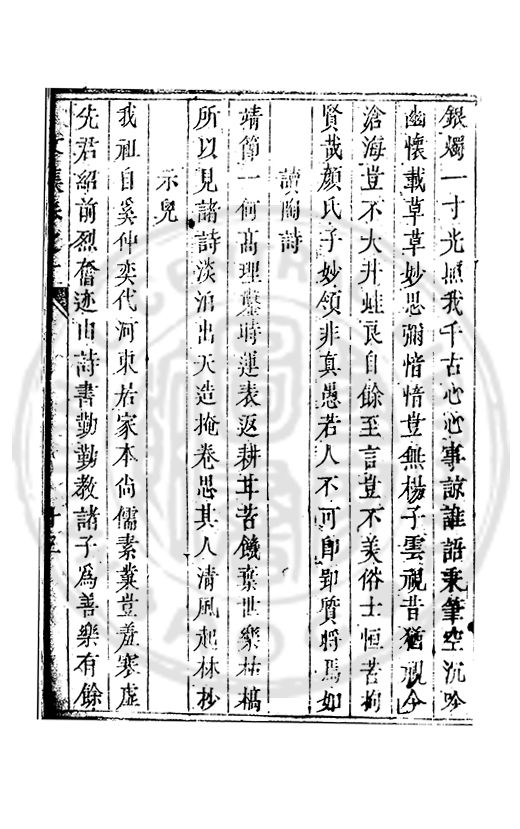 銀燭一寸光照我千古心心事諒誰語秉筆空沉吟
幽懷載草草妙思彌愔愔豈無楊子雲視昔猶視今
滄海豈不大井蛙良自餘至言豈不美俗士恒苦拘
賢哉顏氏子妙領非真愚若人不可卽鄙質將焉如
讀陶詩
靖節一何高理鑿時運表返耕耳苦饑棄世樂枯槁
所以見諸詩淡泊出天造掩卷思其人清風起林杪
示兒
我祖自奚仲奕代河東居家本尚儒素業豈羞寒虛
先君紹前烈奮迹由詩書勤勤教諸子爲善樂有餘
文集卷之